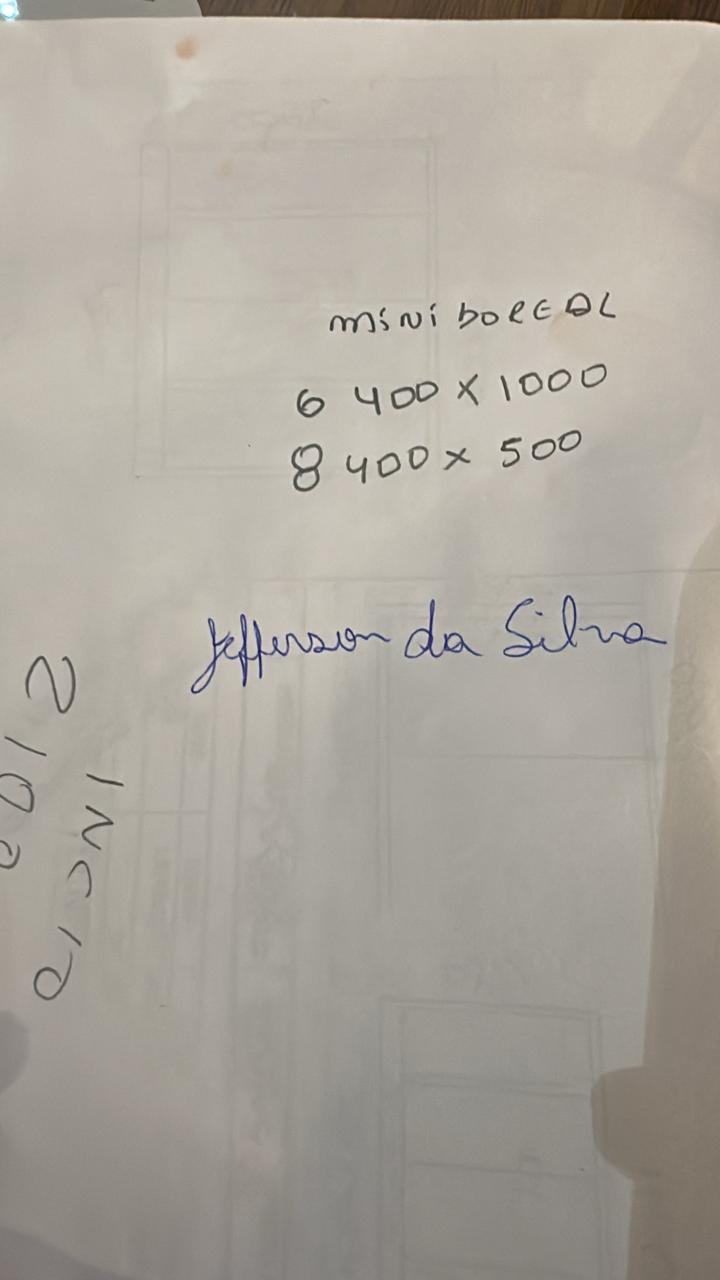 mini boreal
6 400 x 1000
8 400 x 500
Jefferson da Silva